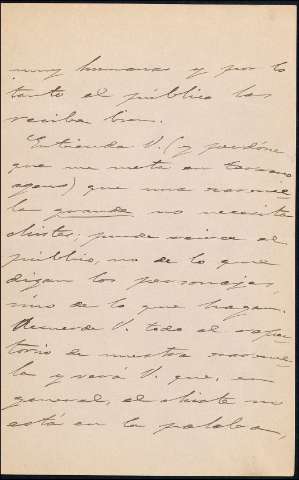 muy humanas y por lo
tanto el público las
reciba bien.
Entienda V. (y perdóne
que me meta en terreno
ageno) que una zarzue-
la grande no necesita
chistes; puede reirse el
público, no de lo que
digan los personajes,
sino de lo que hagan.
Recuerde V. todo el reper-
torio de nuestra zarzue-
la y verá V. que, en
general, el chiste no
está en la palabra,